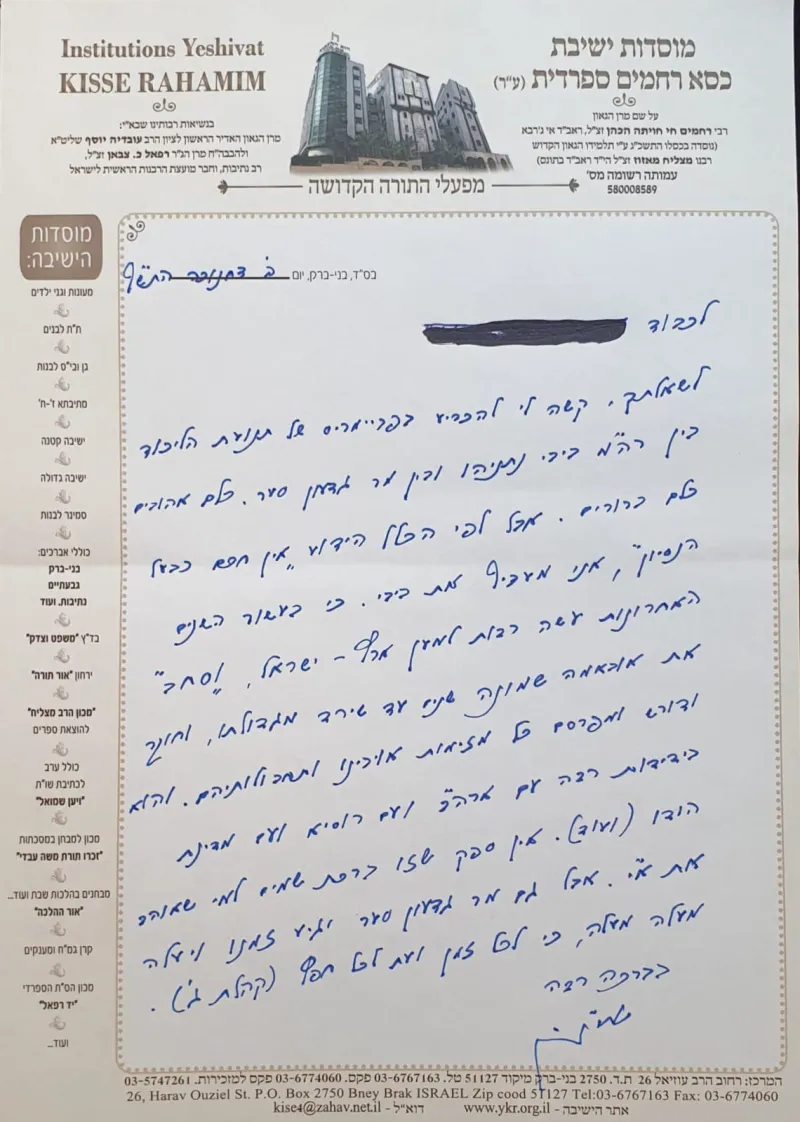 Institutions Yeshivat
KISSE RAHAMIM
בנשיאות רבותינו שבא"י:
מרן הגאון האדיר הראשון לציון הרב עובדיה יוסף שליט"א
ולהבבה"ח מרן הגר"ר רפאל כ. צבאן זצ"ל,
רב נתיבות, וחבר מועצת הרבנות הראשית לישראל
מוסדות ישיבת
כסא רחמים ספרדית (ע"ר)
על שם מרן הגאון
רבי רחמים חי חויתה הכהן זצ"ל, ראב"ד אי ג'רבא
(נוסדה בכסלו התשכ"ג ע"י תלמידו הגאון הקדוש
רבנו מצליח מאזוז זצ"ל הי"ד ראב"ד בתונס)
עמותה רשומה מס'
580008589
מפעלי התורה הקדושה
מוסדות
הישיבה:
מעונות וגני ילדים
ת"ת לבנים
גן ובי"ס לבנות
מתיבתא ז'-ח'
ישיבה קטנה
ישיבה גדולה
סמינר לבנות
כוללי אברכים:
בני-ברק
גבעתיים
נתיבות, ועוד
בד"ץ "משפט וצדק"
ירחון "אור תורה"
"מכון הרב מצליח"
להוצאת ספרים
כולל ערב
לכתיבת שו"ת
"ויען שמואל"
מכון למבחן במסכתות
"זכרו תורת משה עבדי"
מבחנים בהלכות שבת ועוד...
"אור ההלכה"
קרן גמ"ח ומענקים
מכון הס"ת הספרדי
"יד רפאל"
ועוד...
בס"ד, בני-ברק, יום ב' דחנוכה התש"ף
לכבוד
לשאלתך, קשה לי להכריע בפריימריס של תנועת הליכוד
בין רה"מ ביבי נתניהו ובין מר גדעון סער. כלם אהובים
כלם ברורים. אבל לפי הכלל הידוע „אין חכם כבעל
הנסיון", אני מעדיף את ביבי. כי בעשור השנים
האחרונות עשה רבות למען ארץ-ישראל, „וסחב"
את אובאמה שמונה שנים עד שירד מגדולתו, וחוקר
ודורש ומפרסם כל מזימות אויבינו ותחבולותיהם. והוא
בידידות רבה עם ארה"ב ועם רוסיא ועם מדינת
הודו (ועוד). אין ספק שזו ברכת שמים למי שאוהב
את א"י. אבל גם מר גדעון סער יגיע זמנו ויעלה
מעלה מעלה, כי לכל זמן ועת לכל חפץ (קהלת ג').
בברכה רבה
המרכז: רחוב הרב עוזיאל 26 ת.ד. 2750 בני-ברק מיקוד 51127 טל. 03-6767163 פקס. 03-6774060 פקס למזכירות. 03-5747261
26, Harav Ouziel St. P.O. Box 2750 Bney Brak ISRAEL Zip cood 51127 Tel:03-6767163 Fax: 03-6774060
אתר הישיבה - www.ykr.org.il דוא"ל - kise4@zahav.net.il